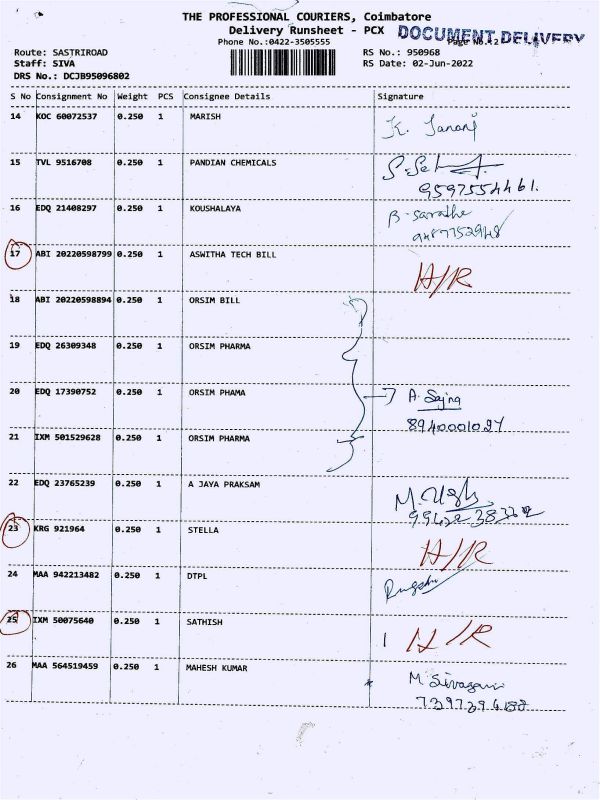 THE PROFESSIONAL COURIERS, Coimbatore
Delivery Runsheet - PCX DOCUMENT DELIVERY
Phone No.:0422-3505555 Page No.:2
Route: SASTRIROAD RS No.: 950968
Staff: SIVA RS Date: 02-Jun-2022
DRS No.: DCJB95096802
S No Consignment No Weight PCS Consignee Details Signature
14 KOC 60072537 0.250 1 MARISH K. Janani
15 TVL 9516708 0.250 1 PANDIAN CHEMICALS
9597554461.
16 EDQ 21408297 0.250 1 KOUSHALAYA B. Sarathe
9487752948
17 ABI 20220598799 0.250 1 ASWITHA TECH BILL H/R
18 ABI 20220598894 0.250 1 ORSIM BILL
19 EDQ 26309348 0.250 1 ORSIM PHARMA
20 EDQ 17390752 0.250 1 ORSIM PHAMA A. Sajna
21 IXM 501529628 0.250 1 ORSIM PHARMA 8940001027
22 EDQ 23765239 0.250 1 A JAYA PRAKSAM
23 KRG 921964 0.250 1 STELLA H/R
24 MAA 942213482 0.250 1 DTPL
25 IXM 50075640 0.250 1 SATHISH H/R
26 MAA 564519459 0.250 1 MAHESH KUMAR M Sivagami